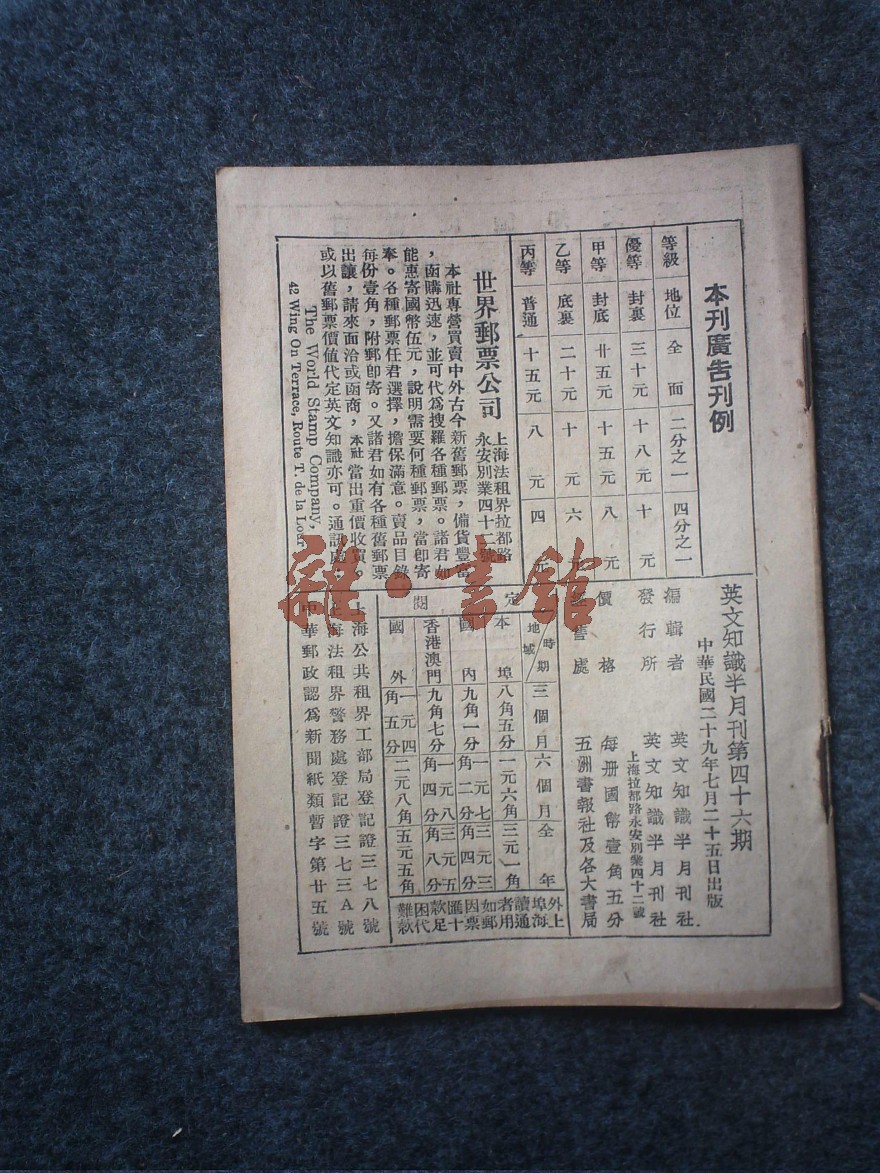 本刊廣告刊例
等級 地位 全面 二分之一 四分之一
優等 封裏 三十元 十八元 十元
甲等 封底 廿五元 十五元 八元
乙等 底裏 二十元 十元 六元
丙等 普通 十五元 八元 四元
世界郵票公司
上海法租界拉都路
永安別業四十二號
本社專營買賣中外古今新舊郵票，備貨豐富
，函購迅速，並可代爲搜羅各種郵票。諸君如
能惠寄國幣伍元，說明需要何種郵票，當卽寄
奉。各種郵票任君選擇，擔保滿意。賣品目錄
每份壹角，附郵卽寄。又諸君如有各種舊郵票
出讓，請來面洽或函商，本社當出重價收買。
或以舊郵票價值代定英文知識亦可。通訊處：
The World Stamp Company,
42 Wing On Terrace, Route T. de la Lour
英文知識半月刊第四十六期
中華民國二十九年七月二十五日出版
編輯者 英文知識半月刊社
發行所 英文知識半月刊社
上海拉都路永安別業四十二號
價格 每册國幣壹角五分
售處 五洲書報社及各大書局
定閱
時期 地域 三個月 六個月 全年
本埠 八角五分 一元六角 三元一角
國內 九角一分 一元七角二分 三元三角四分
香港澳門 九角七分 一元八角四分 三元五角八分
國外 一元四角五分 二元八角 五元五角
外埠讀者如因匯款困難
上海通用郵票十足代款
上海公共租界工部局登記證三七八號
上海法租界警務處登記證三七三A號
中華郵政認爲新聞紙類暫字第廿五號
雜·書館